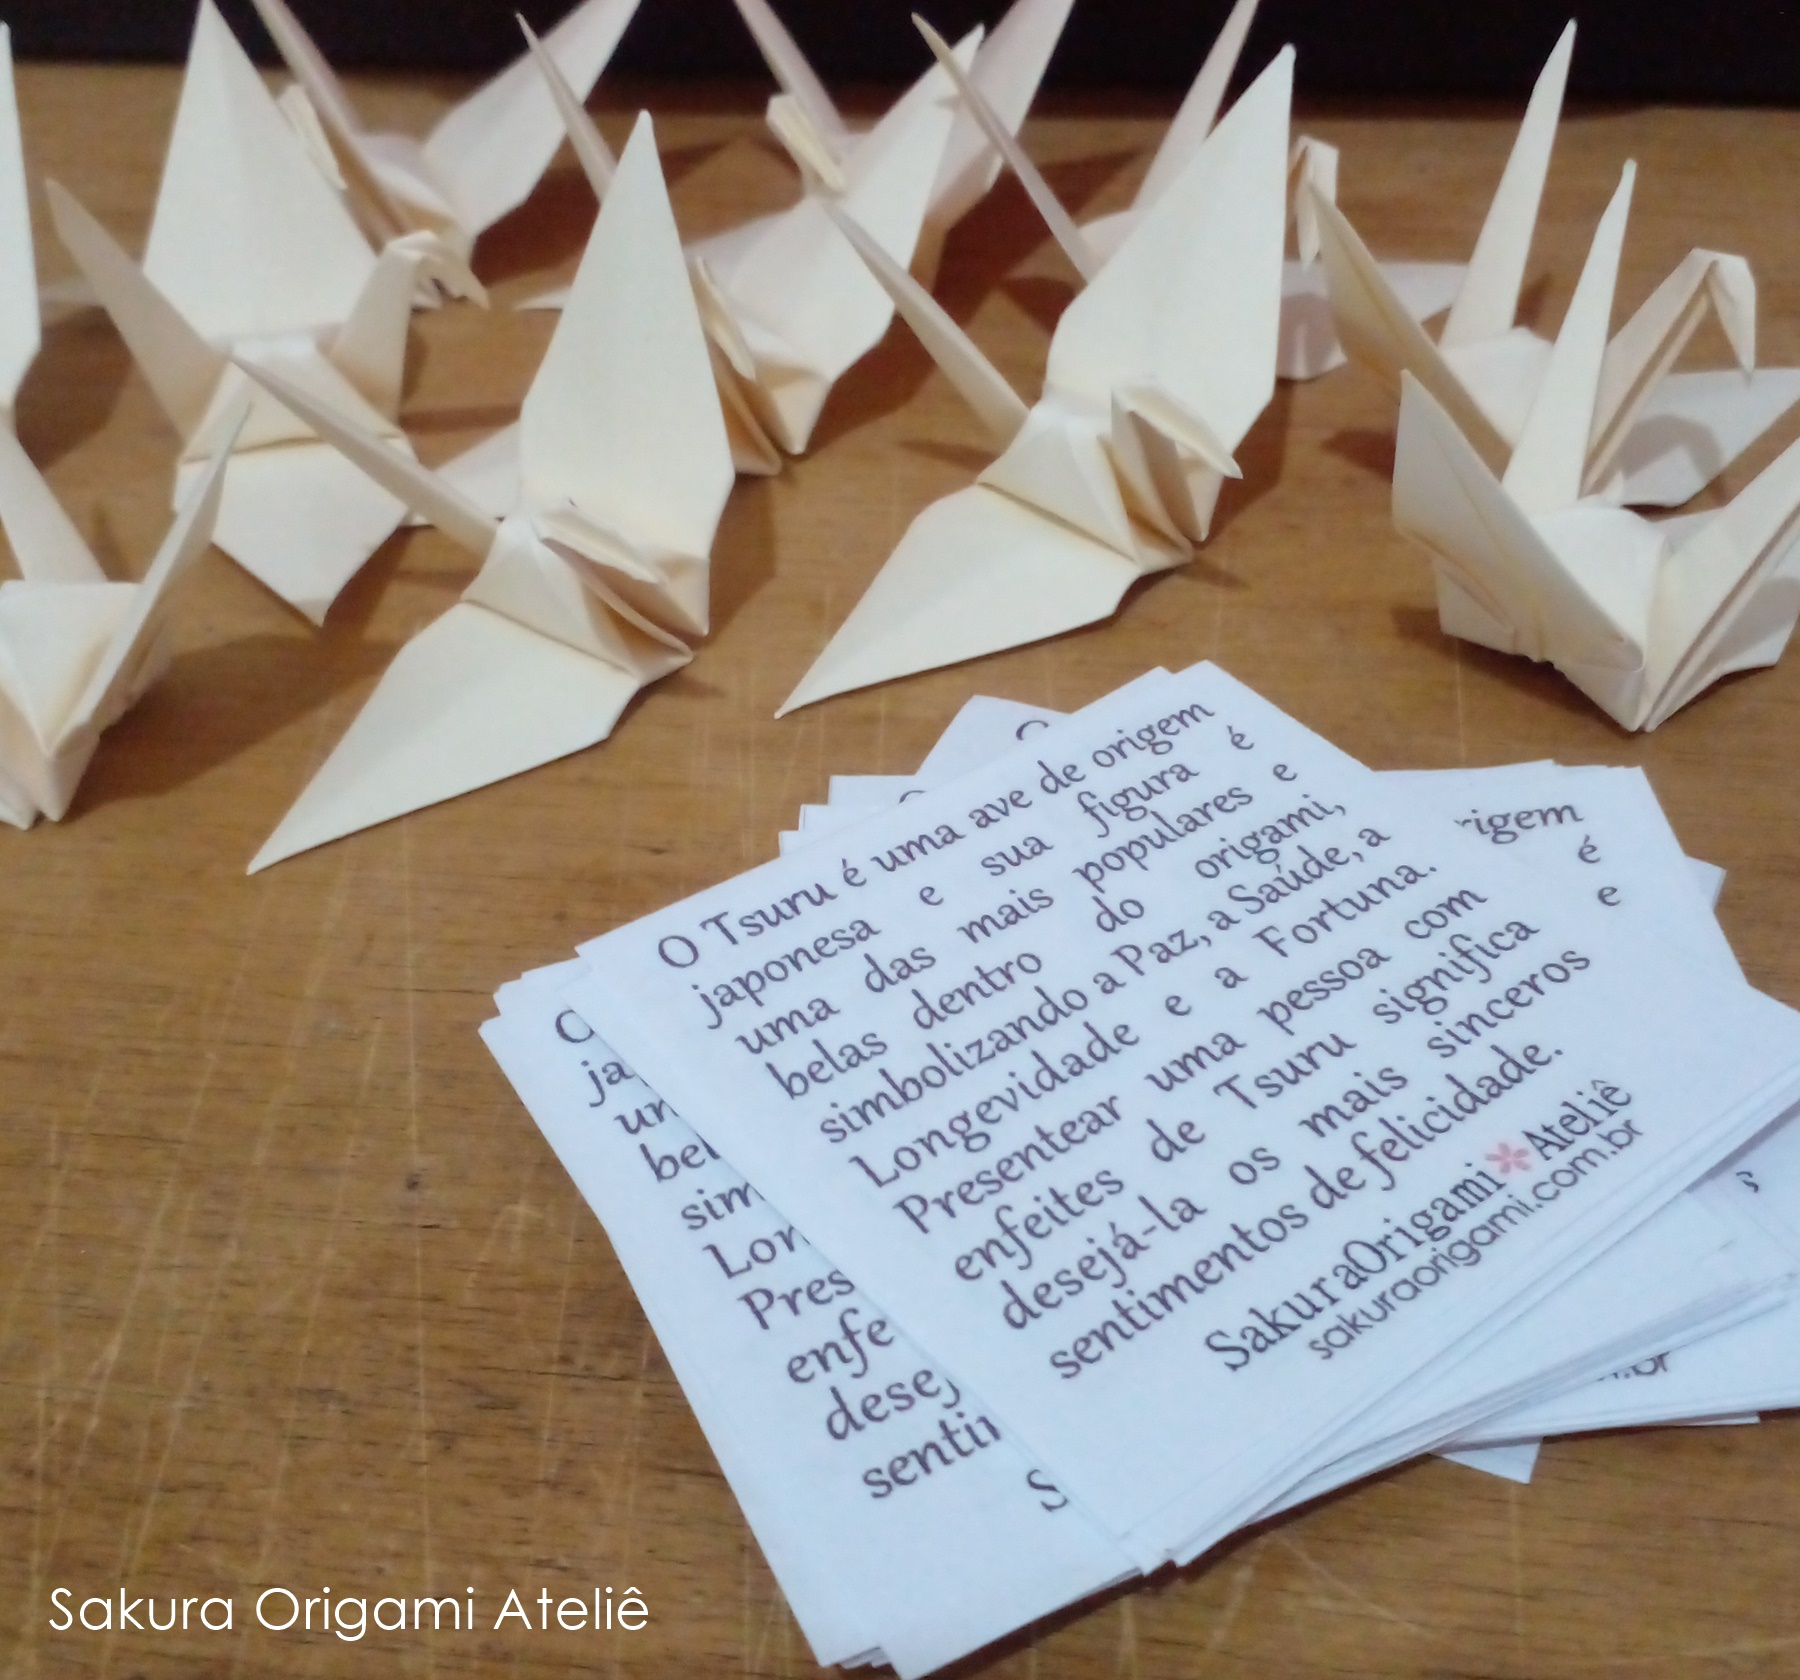 O Tsuru é uma ave de origem
japonesa e sua figura é
uma das mais populares e
belas dentro do origami,
simbolizando a Paz, a Saúde, a
Longevidade e a Fortuna.
Presentear uma pessoa com
enfeites de Tsuru significa
desejá-la os mais sinceros
sentimentos de felicidade.
SakuraOrigami Ateliê
sakuraorigami.com.br
Sakura Origami Ateliê